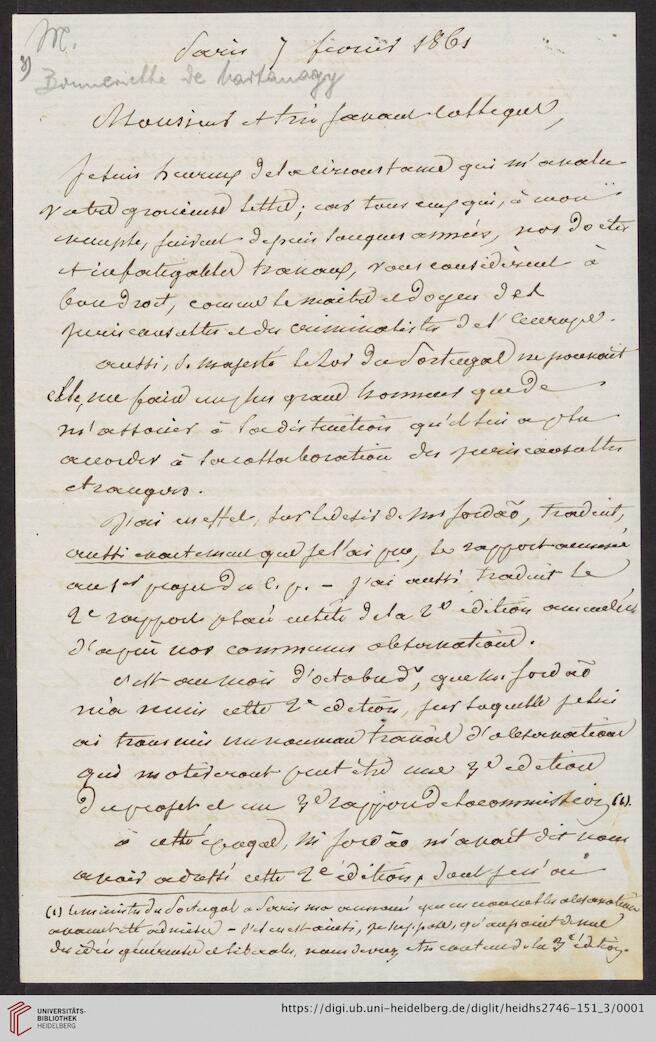 M.
Paris 7 février 1861
8)
Bonneville de Marsangy
Monsieur et très savant collègue,
Je suis heureux de la circonstance qui m'a valu
votre gracieuse lettre; car tous ceux qui, à mon
exemple, suivent depuis longues années, nos doctes
et infatigables travaux, vous considèrent à
bon droit, comme le maître et doyen des
jurisconsultes et des criminalistes de l'Europe.
aussi, S. Majesté le Roi du Portugal ne pouvait
elle, me faire un plus grand honneur que de
m'associer à la distinction qu'il lui a plu
accorder à la collaboration des jurisconsultes
étrangers.
J'ai en effet, sur le désir de Mr Jordaõ, traduit,
aussi exactement que je l'ai pu, le rapport annexé
au 1er projet du C. p. - J'ai aussi traduit le
2e rapport placé en tête de la 2e édition améliorée
d'après nos communes observations.
c'est au mois d'octobre dr, que Mr Jordaõ
m'a remis cette 2e édition, sur laquelle je lui
ai transmis un nouveau travail d'observations
qui motiveront peut être une 3e édition
du projet et un 3e rapport de la commission (1).
à cette époque, Mr Jordaõ m'avait dit vous
avoir adressé cette 2e édition, dont je n'ai
(1) Le ministre du Portugal à Paris m'a annoncé que mes nouvelles observations
avaient été admises - s'il en est ainsi, je suppose, qu'au point de vue
des idées générales et libérales, vous devrez être content de la 3e édition.
UNIVERSITÄTS-
BIBLIOTHEK
HEIDELBERG
https://digi.ub.uni-heidelberg.de/diglit/heidhs2746-151_3/0001